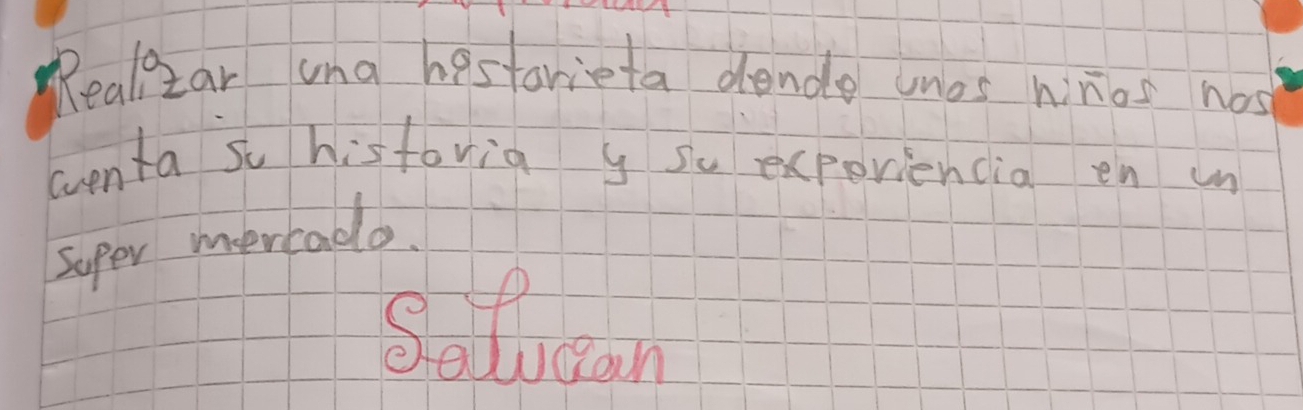 Realizar una historieta donde unos niños nos
cuenta su historia y su experiencia en un
super mercado.
Solucion